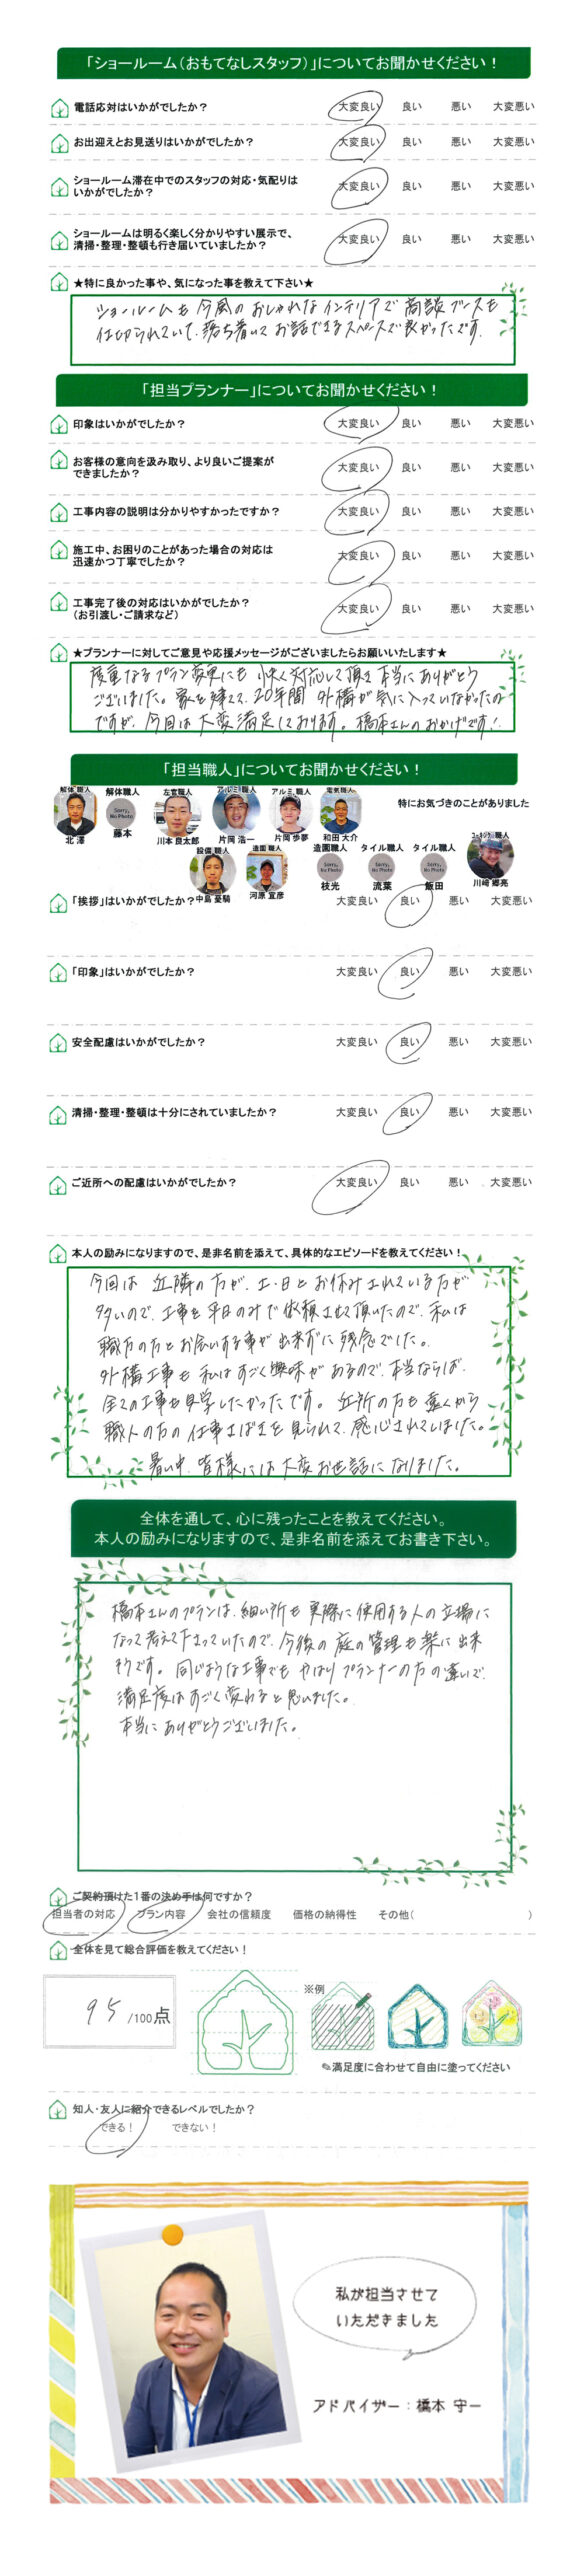 「ショールーム（おもてなしスタッフ）」についてお聞かせください！
電話応対はいかがでしたか？ 大変良い 良い 悪い 大変悪い
お出迎えとお見送りはいかがでしたか？ 大変良い 良い 悪い 大変悪い
ショールーム滞在中でのスタッフの対応・気配りは
いかがでしたか？ 大変良い 良い 悪い 大変悪い
ショールームは明るく楽しく分かりやすい展示で、
清掃・整理・整頓も行き届いていましたか？ 大変良い 良い 悪い 大変悪い
★特に良かった事や、気になった事を教えて下さい★
ショールームも今風のおしゃれなインテリアで商談ブースも
仕切られていて、落ち着いてお話できるスペースで良かったです。
「担当プランナー」についてお聞かせください！
印象はいかがでしたか？ 大変良い 良い 悪い 大変悪い
お客様の意向を汲み取り、より良いご提案が
できましたか？ 大変良い 良い 悪い 大変悪い
工事内容の説明は分かりやすかったですか？ 大変良い 良い 悪い 大変悪い
施工中、お困りのことがあった場合の対応は
迅速かつ丁寧でしたか？ 大変良い 良い 悪い 大変悪い
工事完了後の対応はいかがでしたか？
（お引渡し・ご請求など） 大変良い 良い 悪い 大変悪い
★プランナーに対してご意見や応援メッセージがございましたらお願いいたします★
度重なるプラン変更にも 対応して頂き 本当にありがとう
ございました。家を建てて、20年間 外構が気に入っていなかったの
ですが、今回は大変満足しております。橋本さんのおかげです！
「担当職人」についてお聞かせください！
解体 職人 解体職人 左官職人 アルミ 職人 アルミ 職人 電気職人
特にお気づきのことがありました
Sorry, No Photo
北 澤 藤本 川本 良太郎 片岡 浩一 片岡 歩夢 和田 大介
設備 職人 造園 職人 造園職人 タイル職人 タイル職人 コーキング 職人
Sorry, No Photo Sorry, No Photo Sorry, No Photo
中島 憂騎 河原 宜彦 枝光 流葉 飯田 川﨑 郷亮
「挨拶」はいかがでしたか？ 大変良い 良い 悪い 大変悪い
「印象」はいかがでしたか？ 大変良い 良い 悪い 大変悪い
安全配慮はいかがでしたか？ 大変良い 良い 悪い 大変悪い
清掃・整理・整頓は十分にされていましたか？ 大変良い 良い 悪い 大変悪い
ご近所への配慮はいかがでしたか？ 大変良い 良い 悪い 大変悪い
本人の励みになりますので、是非名前を添えて、具体的なエピソードを教えてください！
今回は 近隣の方が、土・日とお休みされている方が
多いので、工事を平日のみで依頼させて頂いたので、私は
職方の方とお会いする事が出来ずに残念でした。
外構工事も 私はすごく興味があるので、本当ならば、
全ての工事も見学したかったです。近所の方も遠くから
職人の方の仕事さばきを見られて、感心されてしました。
暑い中、皆様には大変お世話になりました。
全体を通して、心に残ったことを教えてください。
本人の励みになりますので、是非名前を添えてお書き下さい。
橋本さんのプランは、細い所も実際に使用する人の立場に
なって考えて下さっていたので、今後の庭の管理も楽に出来
そうです。同じような工事でも やはりプランナーの方の違いで、
満足度はすごく変わると思いました。
本当にありがとうございました。
ご契約頂けた1番の決め手は何ですか？
担当者の対応 プラン内容 会社の信頼度 価格の納得性 その他（ ）
全体を見て総合評価を教えてください！
95 /100点
※例
✎満足度に合わせて自由に塗ってください
知人・友人に紹介できるレベルでしたか？
できる！ できない！
私が担当させて
いただきました
アドバイザー：橋本 守一